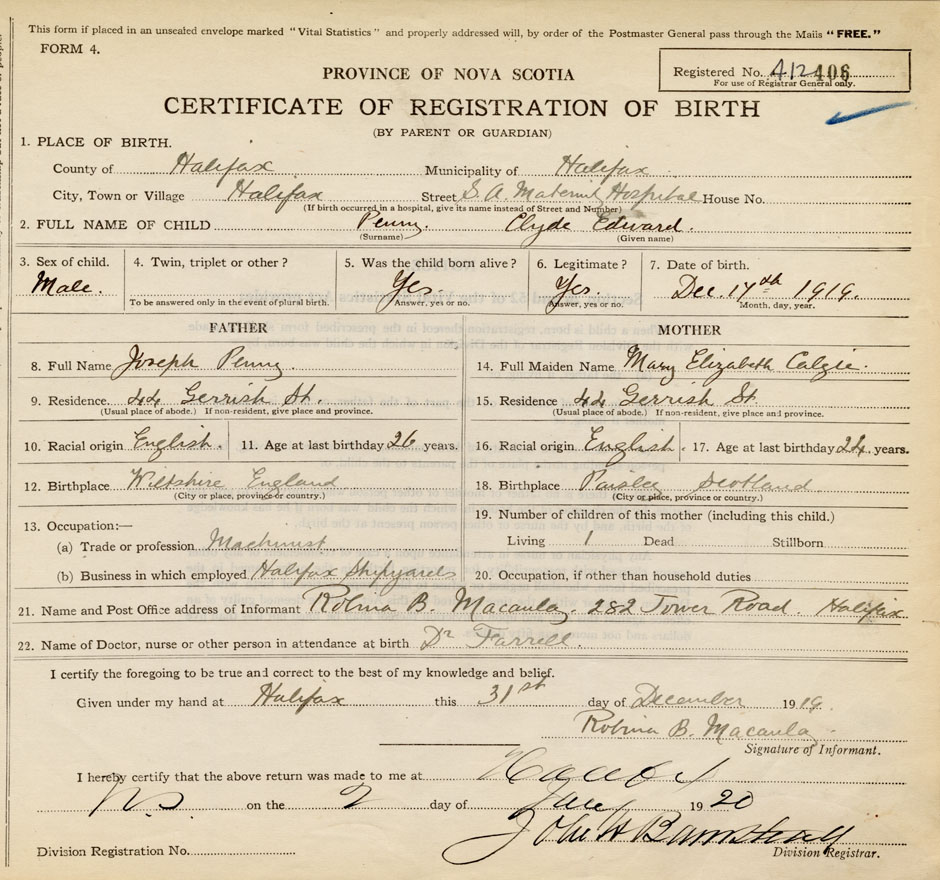 This form if placed in an unsealed envelope marked "Vital Statistics" and properly addressed will, by order of the Postmaster General pass through the Mails "FREE."
FORM 4.
Registered No. 412 406
For use of Registrar General only.
PROVINCE OF NOVA SCOTIA
CERTIFICATE OF REGISTRATION OF BIRTH
(BY PARENT OR GUARDIAN)
1. PLACE OF BIRTH.
County of Halifax Municipality of Halifax
City, Town or Village Halifax Street S. A. Maternity Hospital House No.
(If birth occurred in a hospital, give its name instead of Street and Number)
2. FULL NAME OF CHILD Penny. Clyde Edward.
(Surname) (Given name)
3. Sex of child. 4. Twin, triplet or other? 5. Was the child born alive? 6. Legitimate? 7. Date of birth.
Male. Yes. Yes. Dec. 17th 1919.
To be answered only in the event of plural birth. Answer, yes or no. Answer, yes or no. Month, day, year.
FATHER MOTHER
8. Full Name Joseph Penny. 14. Full Maiden Name Mary Elizabeth Calzie.
9. Residence 44 Gerrish St. 15. Residence 44 Gerrish St.
(Usual place of abode.) If non-resident, give place and province. (Usual place of abode.) If non-resident, give place and province.
10. Racial origin English. 11. Age at last birthday 26 years. 16. Racial origin English. 17. Age at last birthday 24. years.
12. Birthplace Wiltshire England 18. Birthplace Paisley Scotland.
(City or place, province or country.) (City or place, province or country.)
13. Occupation:— 19. Number of children of this mother (including this child.)
(a) Trade or profession Machinist Living 1 Dead Stillborn
(b) Business in which employed Halifax Shipyards 20. Occupation, if other than household duties
21. Name and Post Office address of Informant Robina B. Macaulay. 282 Tower Road. Halifax
22. Name of Doctor, nurse or other person in attendance at birth Dr Farrell.
I certify the foregoing to be true and correct to the best of my knowledge and belief.
Given under my hand at Halifax this 31st day of December 1919.
Robina B. Macaulay
Signature of Informant.
I hereby certify that the above return was made to me at Halifax
NS on the 2 day of Jany 1920
John H Barnstead
Division Registration No. Division Registrar.